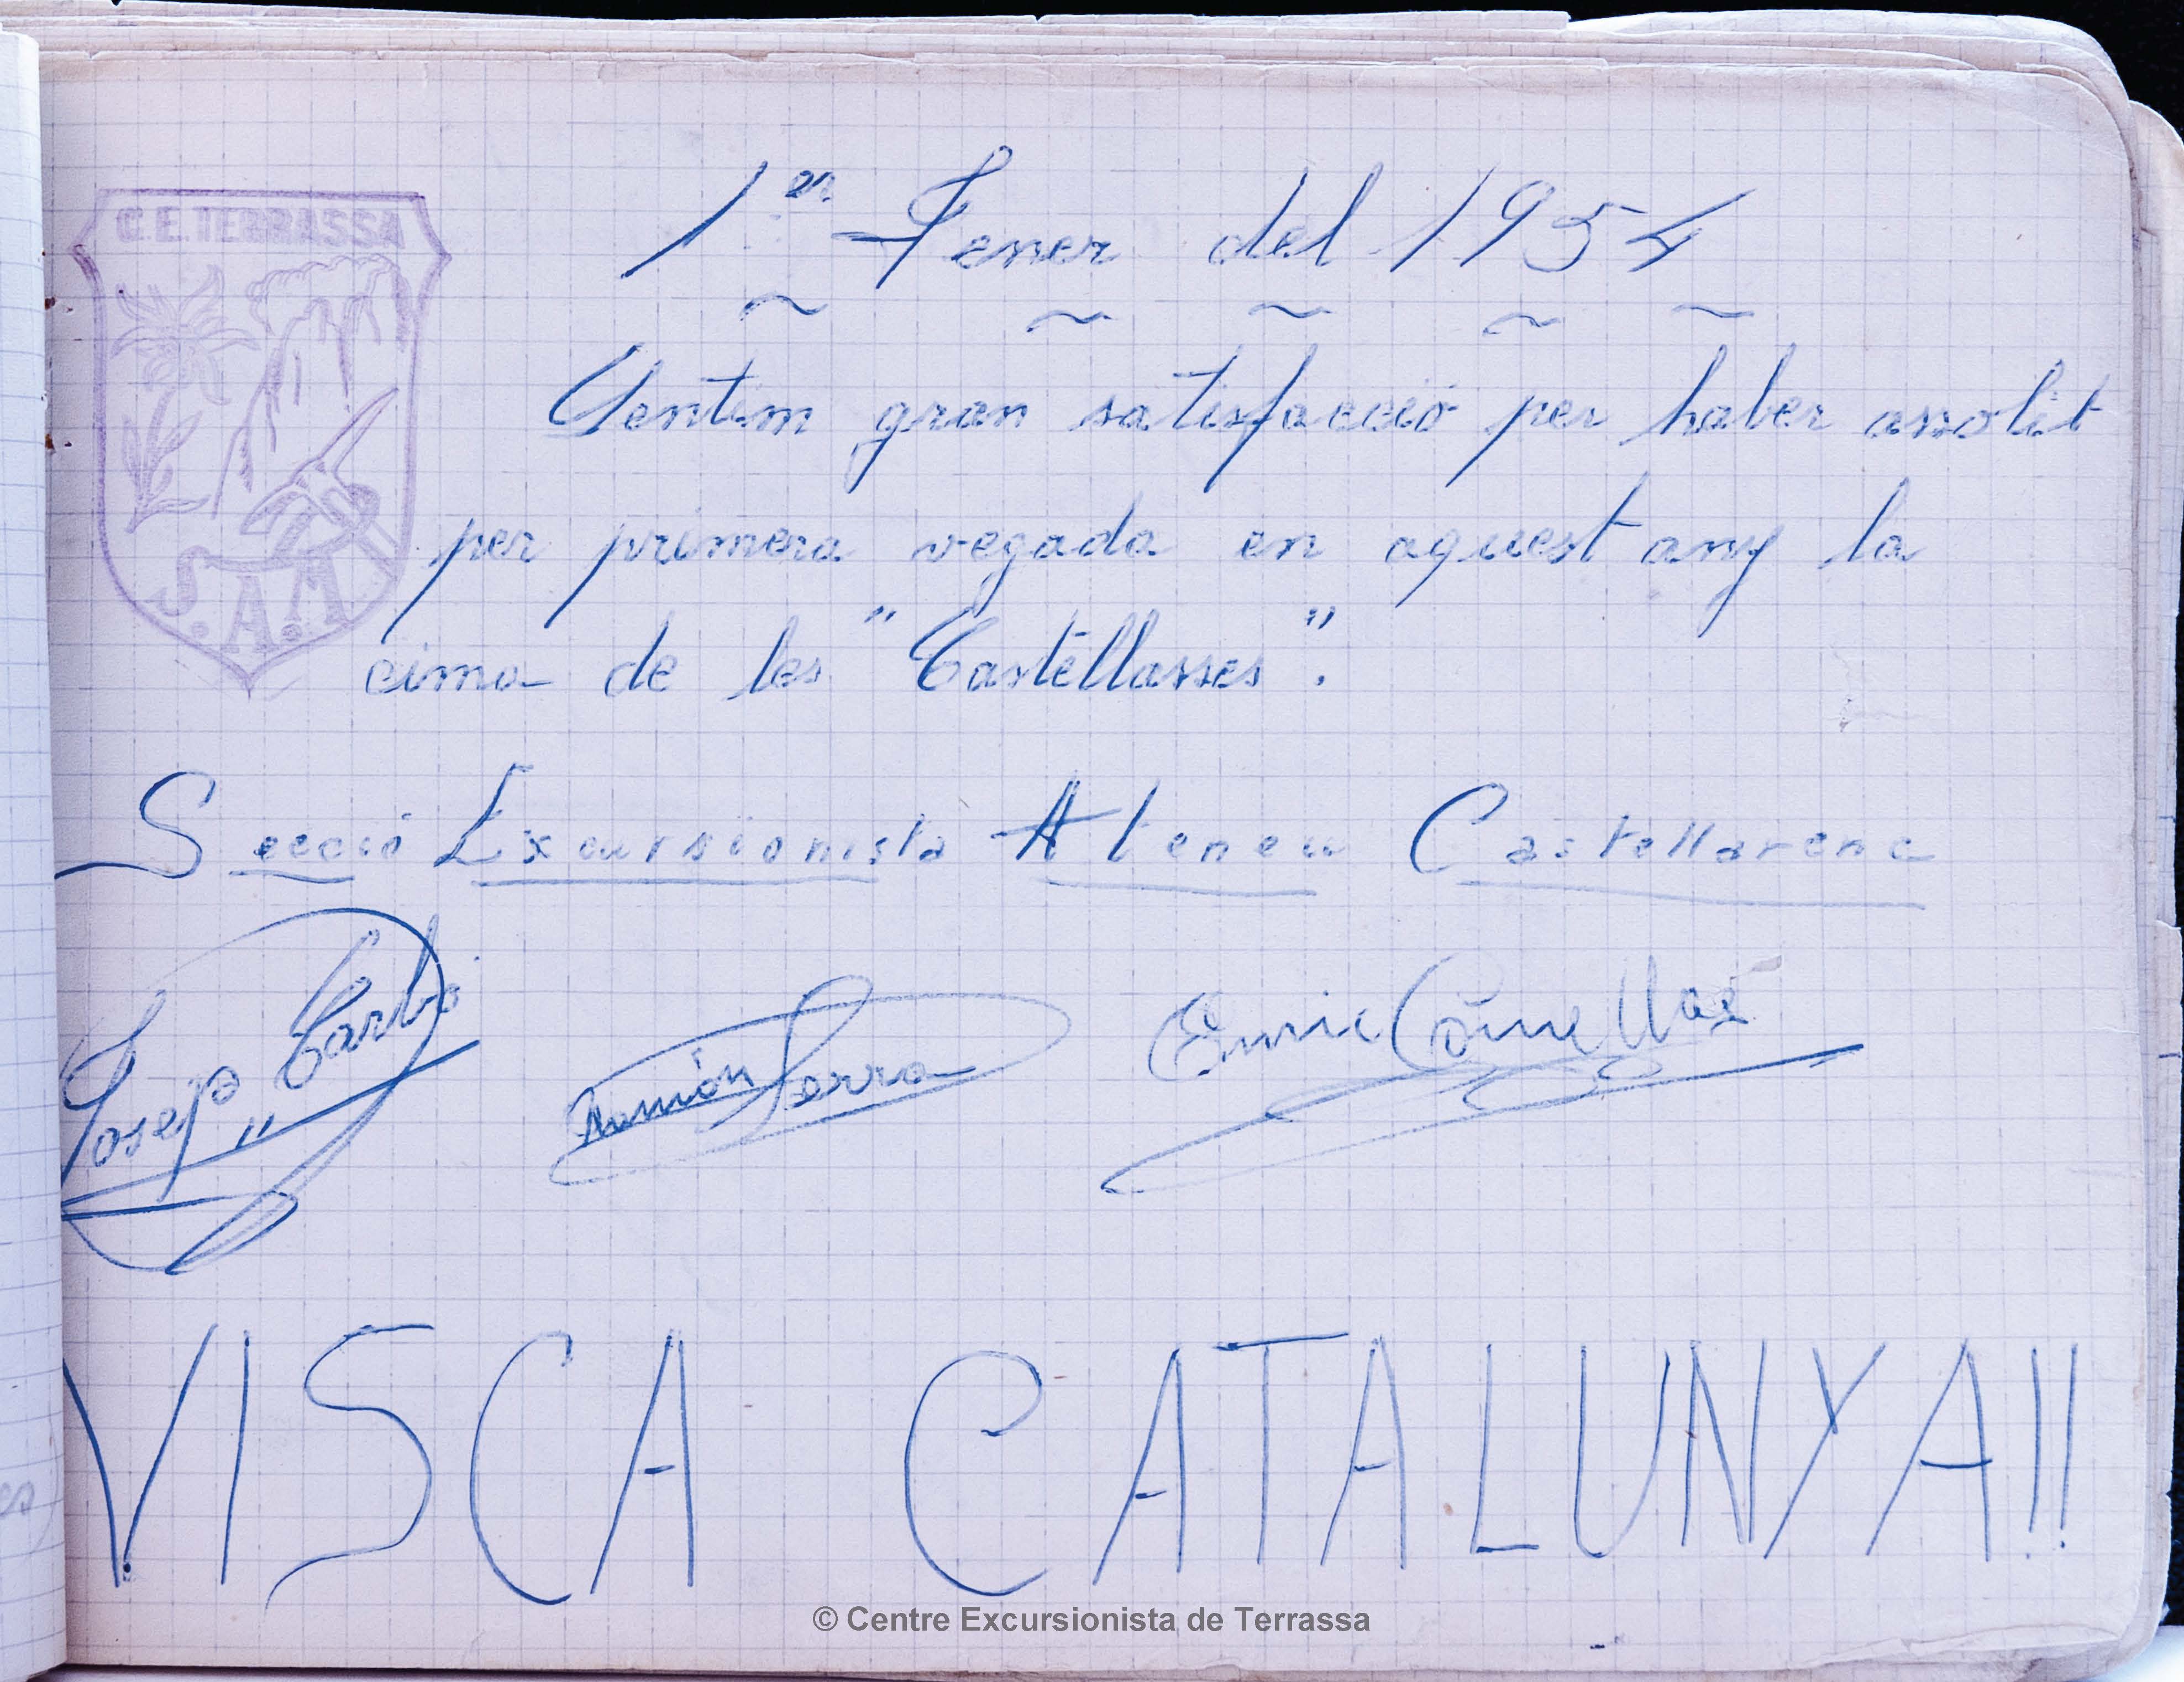 C.E. TERRASSA
S.A.M
1er Jener del 1954
Sentim gran satisfacció per haber assolit
per primera vegada en aquest any la
cima de les "Castellasses".
Secció Excursionista Ateneu Castellarenc
Josep Carbó
Ramón Serra
Enric Comellas
VISCA CATALUNYA!!
© Centre Excursionista de Terrassa